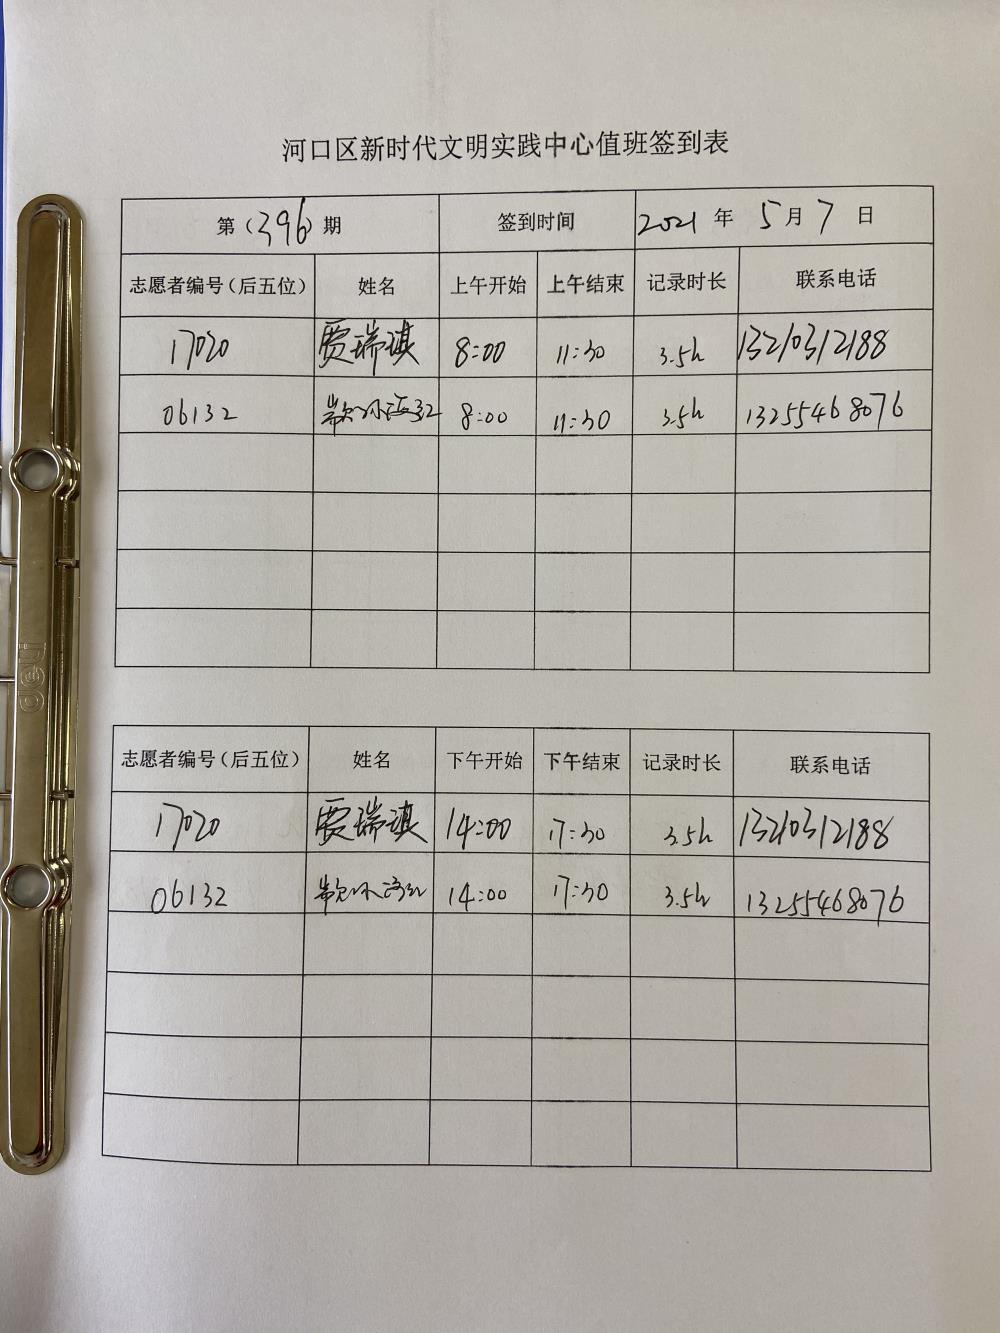 河口区新时代文明实践中心值班签到表
第（396）期 签到时间 2021年5月7日
志愿者编号（后五位） 姓名 上午开始 上午结束 记录时长 联系电话
17020 贾瑞琪 8:00 11:30 3.5h 13210312188
06132 8:00 11:30 3.5h 13255468076
志愿者编号（后五位） 姓名 下午开始 下午结束 记录时长 联系电话
17020 贾瑞琪 14:00 17:30 3.5h 13210312188
06132 14:00 17:30 3.5h 13255468076